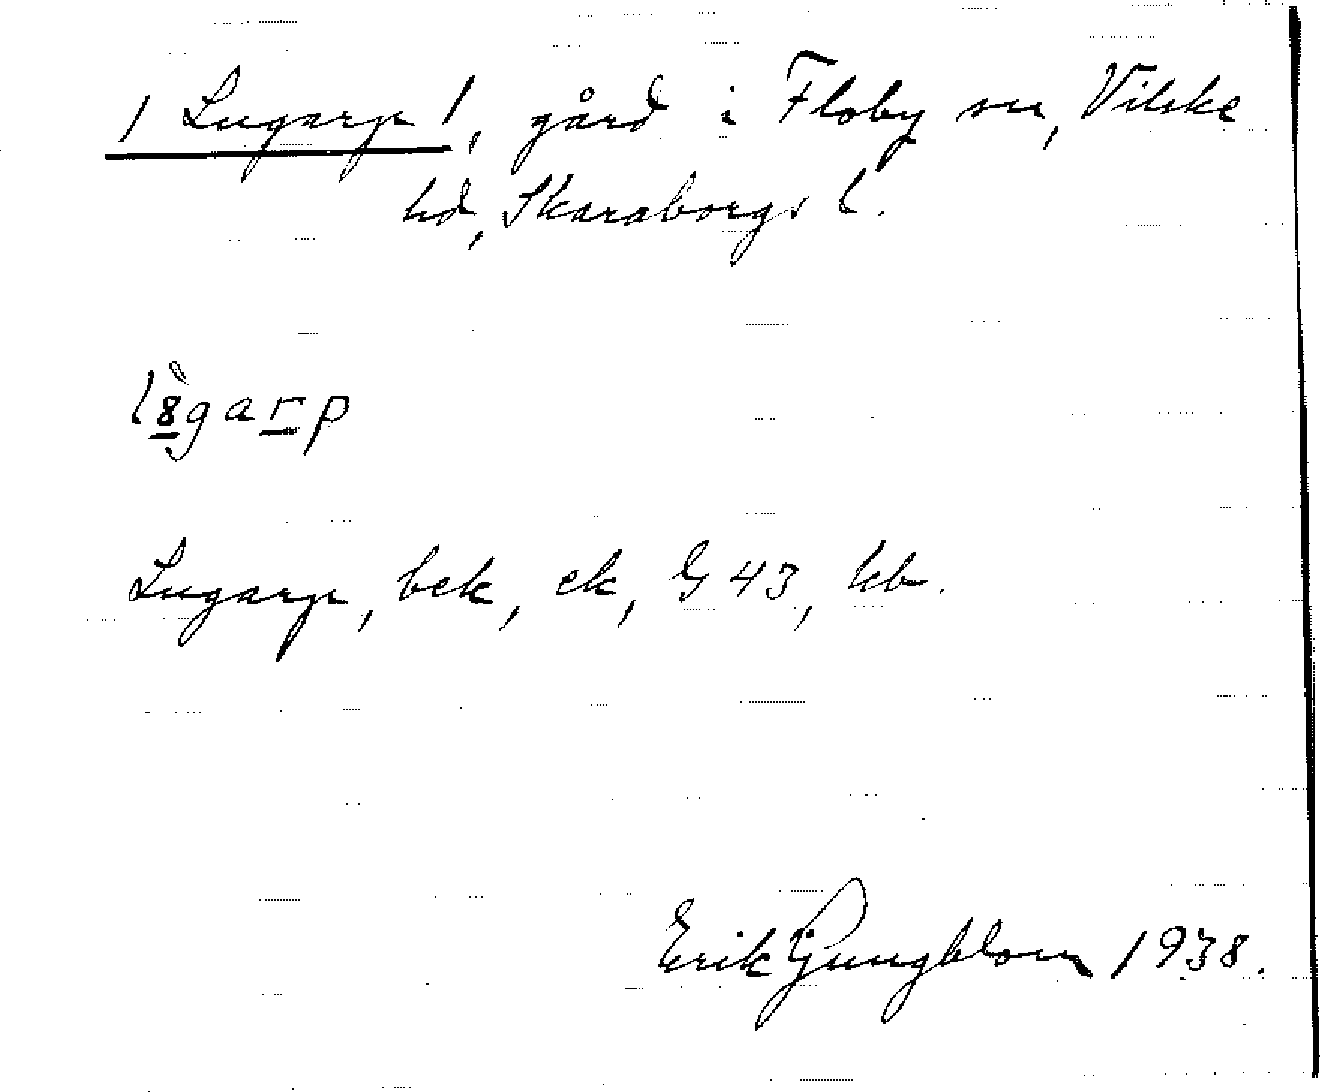 / Lugarp /, gård i Floby sn, Vilske
hd, Skaraborgs l.
Lugarp, bek, ek, G 43, hb.
Erik Ljungblom 1938.